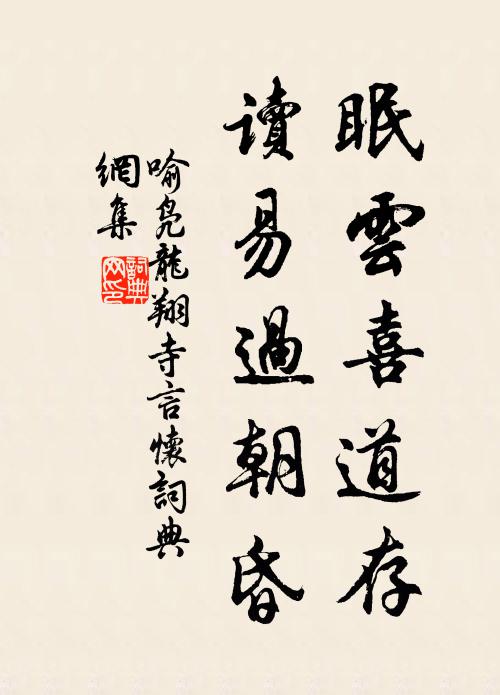 眠雲喜道存
讀易過朝昏
喻凫龍翔寺言懷詞典
網集
詞典
网印